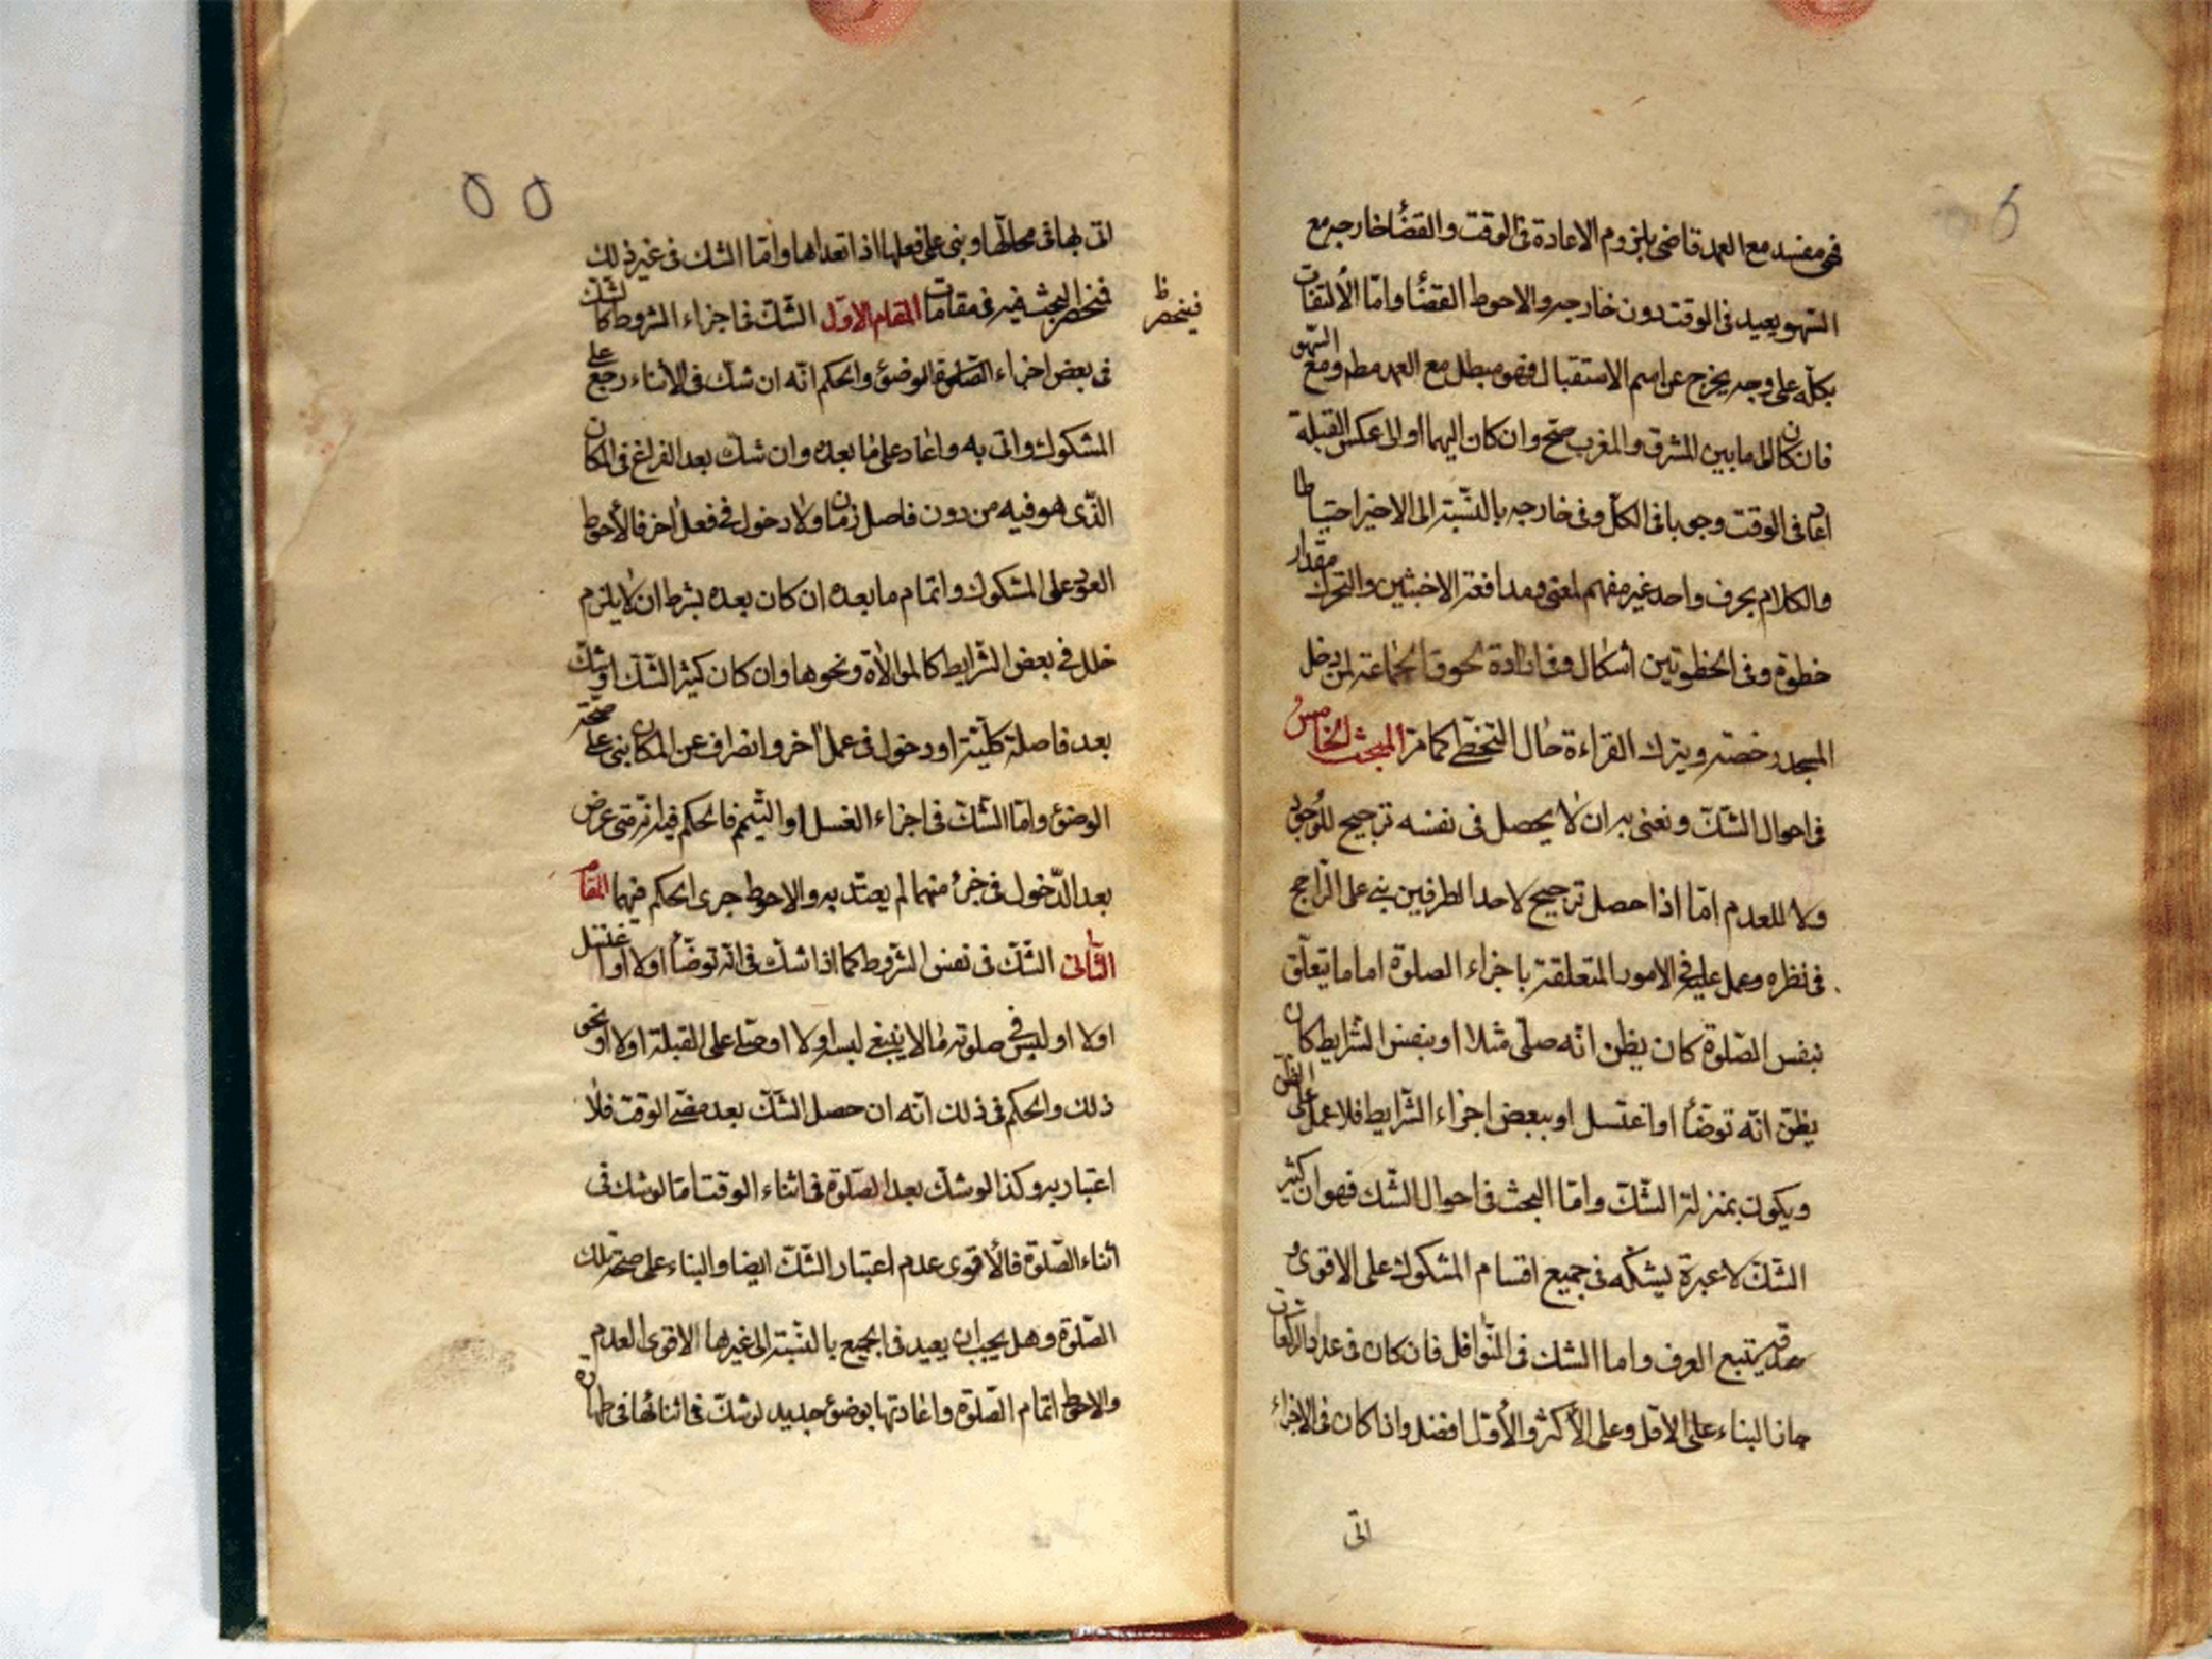 فهی مفسد مع العمد قاضی بلزوم الاعادة فی الوقت والقضأ خارجه مع
السّهو یعید فی الوقت دون خارجه والاحوط القضأ وامّا الألتفات
بکلّه علی وجه یخرج عن اسم الاستقبال فهو مبطل مع العمد مطم ومع السّهو
فان کان الی ما بین المشرق والمغرب صحّ وان کان الیهما او الی عکس القبلة
اعاد فی الوقت وجوبا فی الکلّ وفی خارجه بالنّسبة الی الاخیر احتیاطا
والکلام بحرف واحد غیر مفهم لمعنی ومدافعة الاخبثین والتحرّک مقدار
خطوة وفی الخطوتین اشکال وفی ارادة لحوق الجماعة لمن دخل
المسجد رخصة ویترک القراءة حال التخطّی کما مرّ المبحث الخامس
فی احوال الشّکّ ونعنی به ان لا یحصل فی نفسه ترجیح للوجود
ولا للعدم امّا اذا حصل ترجیح لاحد الطرفین بنی علی الرّاجح
فی نظره وعمل علیه فی الامور المتعلقة باجزاء الصلوة اما ما یتعلّق
بنفس الصّلوة کان یظن انّه صلّی مثلا او بنفس الشّرایط کان
یظنّ انّه توضّأ او اغتسل او ببعض اجزاء الشّرایط فلا عمل علی الظنّ
ویکون بمنزلة الشّکّ وامّا البحث فی احوال الشّک فهو ان کثیر
الشّکّ لا عبرة بشکّه فی جمیع اقسام المشکوک علی الاقوی و
حدّه یتبع العرف واما الشک فی النّوافل فان کان فی عدد الرکعات
جاز البناء علی الاقل وعلی الأکثر والأقل افضل وان کان فی الاجزاء
اتی
٥٥
اتی بها فی محالّها وبنی علی فعلها اذا تعدّاها وامّا الشک فی غیر ذلک
فنحصر البحث فیه فی مقامات المقام الاوّل الشّکّ فی اجزاء الشروط کان شک
فینحصر ظ
فی بعض اجزاء الصّلوة الوضوء والحکم انّه ان شکّ فی الأثناء رجع علی
المشکوک واتی به واعاد علی ما بعده وان شکّ بعد الفراغ فی المکان
الّذی هو فیه من دون فاصل زمان ولا دخول فی فعل اخر فالأحوط
العود علی المشکوک واتمام ما بعده ان کان بعده بشرط ان لا یلزم
خلل فی بعض الشّرایط کالموالاة ونحوها وان کان کثیر الشّکّ او شکّ
بعد فاصلة کلّیّة او دخول فی عمل اخر وانصراف عن المکان بنی علی صحّة
الوضوء وامّا الشّکّ فی اجزاء الغسل او التّیمّم فالحکم فیه انّه متی عرض
بعد الدّخول فی جزء منهما لم یعتدّ به والاحوط جری الحکم فیهما المقام
الثّانی الشّکّ فی نفس الشّروط کما اذا شکّ فی انّه توضّأ اولا او اغتسل
اولا او لبس فی صلوته ما لا ینبغی لبسه اولا او صلّی علی القبلة اولا او نحو
ذلک والحکم فی ذلک انّه ان حصل الشّکّ بعد مضیّ الوقت فلا
اعتبار به وکذا لو شکّ بعد الصّلوة فی اثناء الوقت امّا لو شک فی
اثناء الصّلوة فالأقوی عدم اعتبار الشّکّ ایضا والبناء علی صحّة تلک
الصّلوة وهل یجب ان یعید فی الجمیع بالنّسبة الی غیرها الاقوی العدم
والاحوط اتمام الصّلوة واعادتها بوضوء جدید لو شکّ فی اثنائها فی طهارة